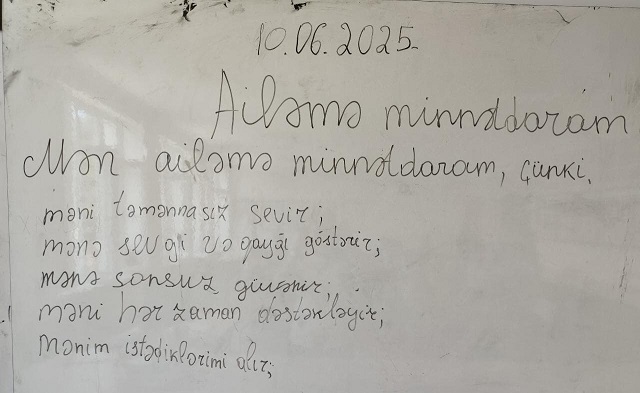 10.06.2025.
Ailəmə minnətdaram
Mən ailəmə minnətdaram, çünki,
məni təmənnasız sevir;
mənə sevgi və qayğı göstərir;
mənə sonsuz güvənir;
məni hər zaman dəstəkləyir;
mənim istədiklərimi alır;